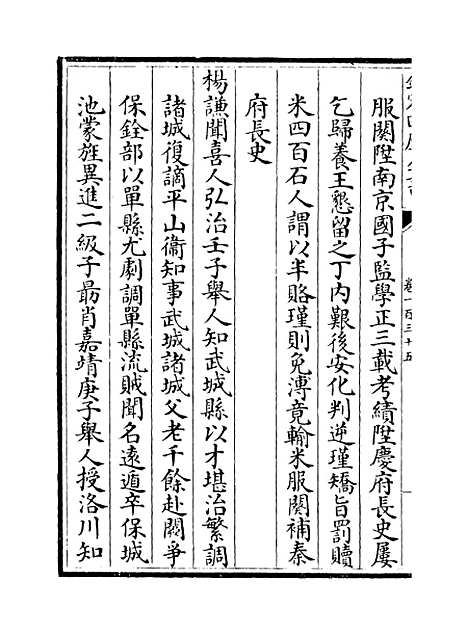 服闋陞南京國子監學正三載考績陞慶府長史屢
乞歸養王懇留之丁內艱後安化判逆瑾矯旨罰贖
米四百石人謂以半賂瑾則免溥竟輸米服闋補秦
府長史
楊謙聞喜人弘治壬子舉人知武城縣以才堪治繁調
諸城復謫平山衞知事武城諸城父老千餘赴闕爭
保銓部以單縣尤劇調單縣流賊聞名遠遁卒保城
池蒙旌異進二級子最肖嘉靖庚子舉人授洛川知
卷一百三十五